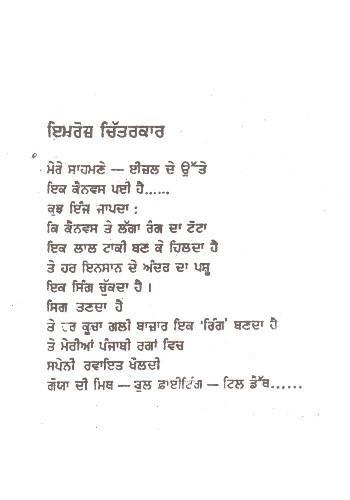 ਇਮਰੋਜ਼ ਚਿੱਤਰਕਾਰ
ਮੇਰੇ ਸਾਹਮਣੇ — ਈਜ਼ਲ ਦੇ ਉੱਤੇ
ਇਕ ਕੈਨਵਸ ਪਈ ਹੈ......
ਕੁਝ ਇੰਜ ਜਾਪਦਾ :
ਕਿ ਕੈਨਵਸ ਤੇ ਲੱਗਾ ਰੰਗ ਦਾ ਟੋਟਾ
ਇਕ ਲਾਲ ਟਾਕੀ ਬਣ ਕੇ ਹਿਲਦਾ ਹੈ
ਤੇ ਹਰ ਇਨਸਾਨ ਦੇ ਅੰਦਰ ਦਾ ਪਸ਼ੂ
ਇਕ ਸਿੰਗ ਚੁੱਕਦਾ ਹੈ ।
ਸਿਗ ਤਣਦਾ ਹੈ
ਤੇ ਹਰ ਕੂਚਾ ਗਲੀ ਬਾਜ਼ਾਰ ਇਕ 'ਰਿੰਗ' ਬਣਦਾ ਹੈ
ਤੇ ਮੇਰੀਆਂ ਪੰਜਾਬੀ ਰਗਾਂ ਵਿਚ
ਸਪੇਨੀ ਰਵਾਇਤ ਖੌਲਦੀ
ਗੋਯਾ ਦੀ ਮਿਥ — ਬੁਲ ਫ਼ਾਈਟਿੰਗ — ਟਿਲ ਡੈੱਥ......